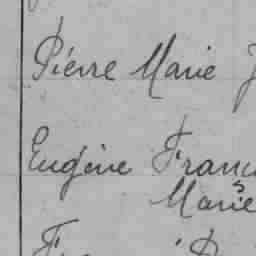 Pierre Marie J
Eugène Franc
Marie